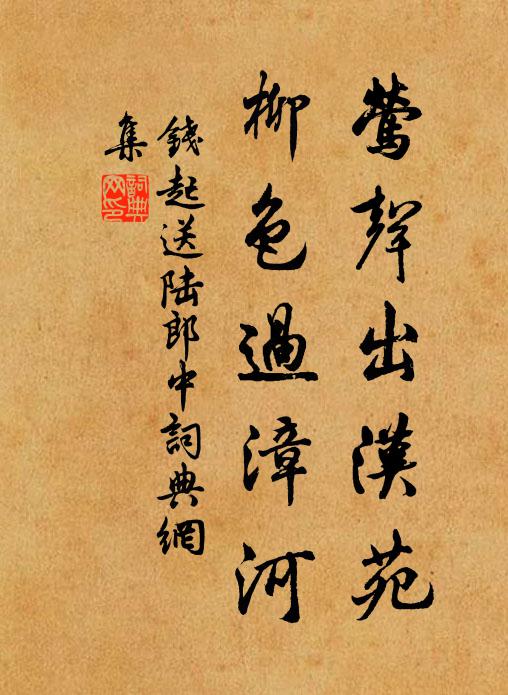 鶯聲出漢苑
柳色過漳河
錢起送陸郎中詞典網
集
詞典
网印